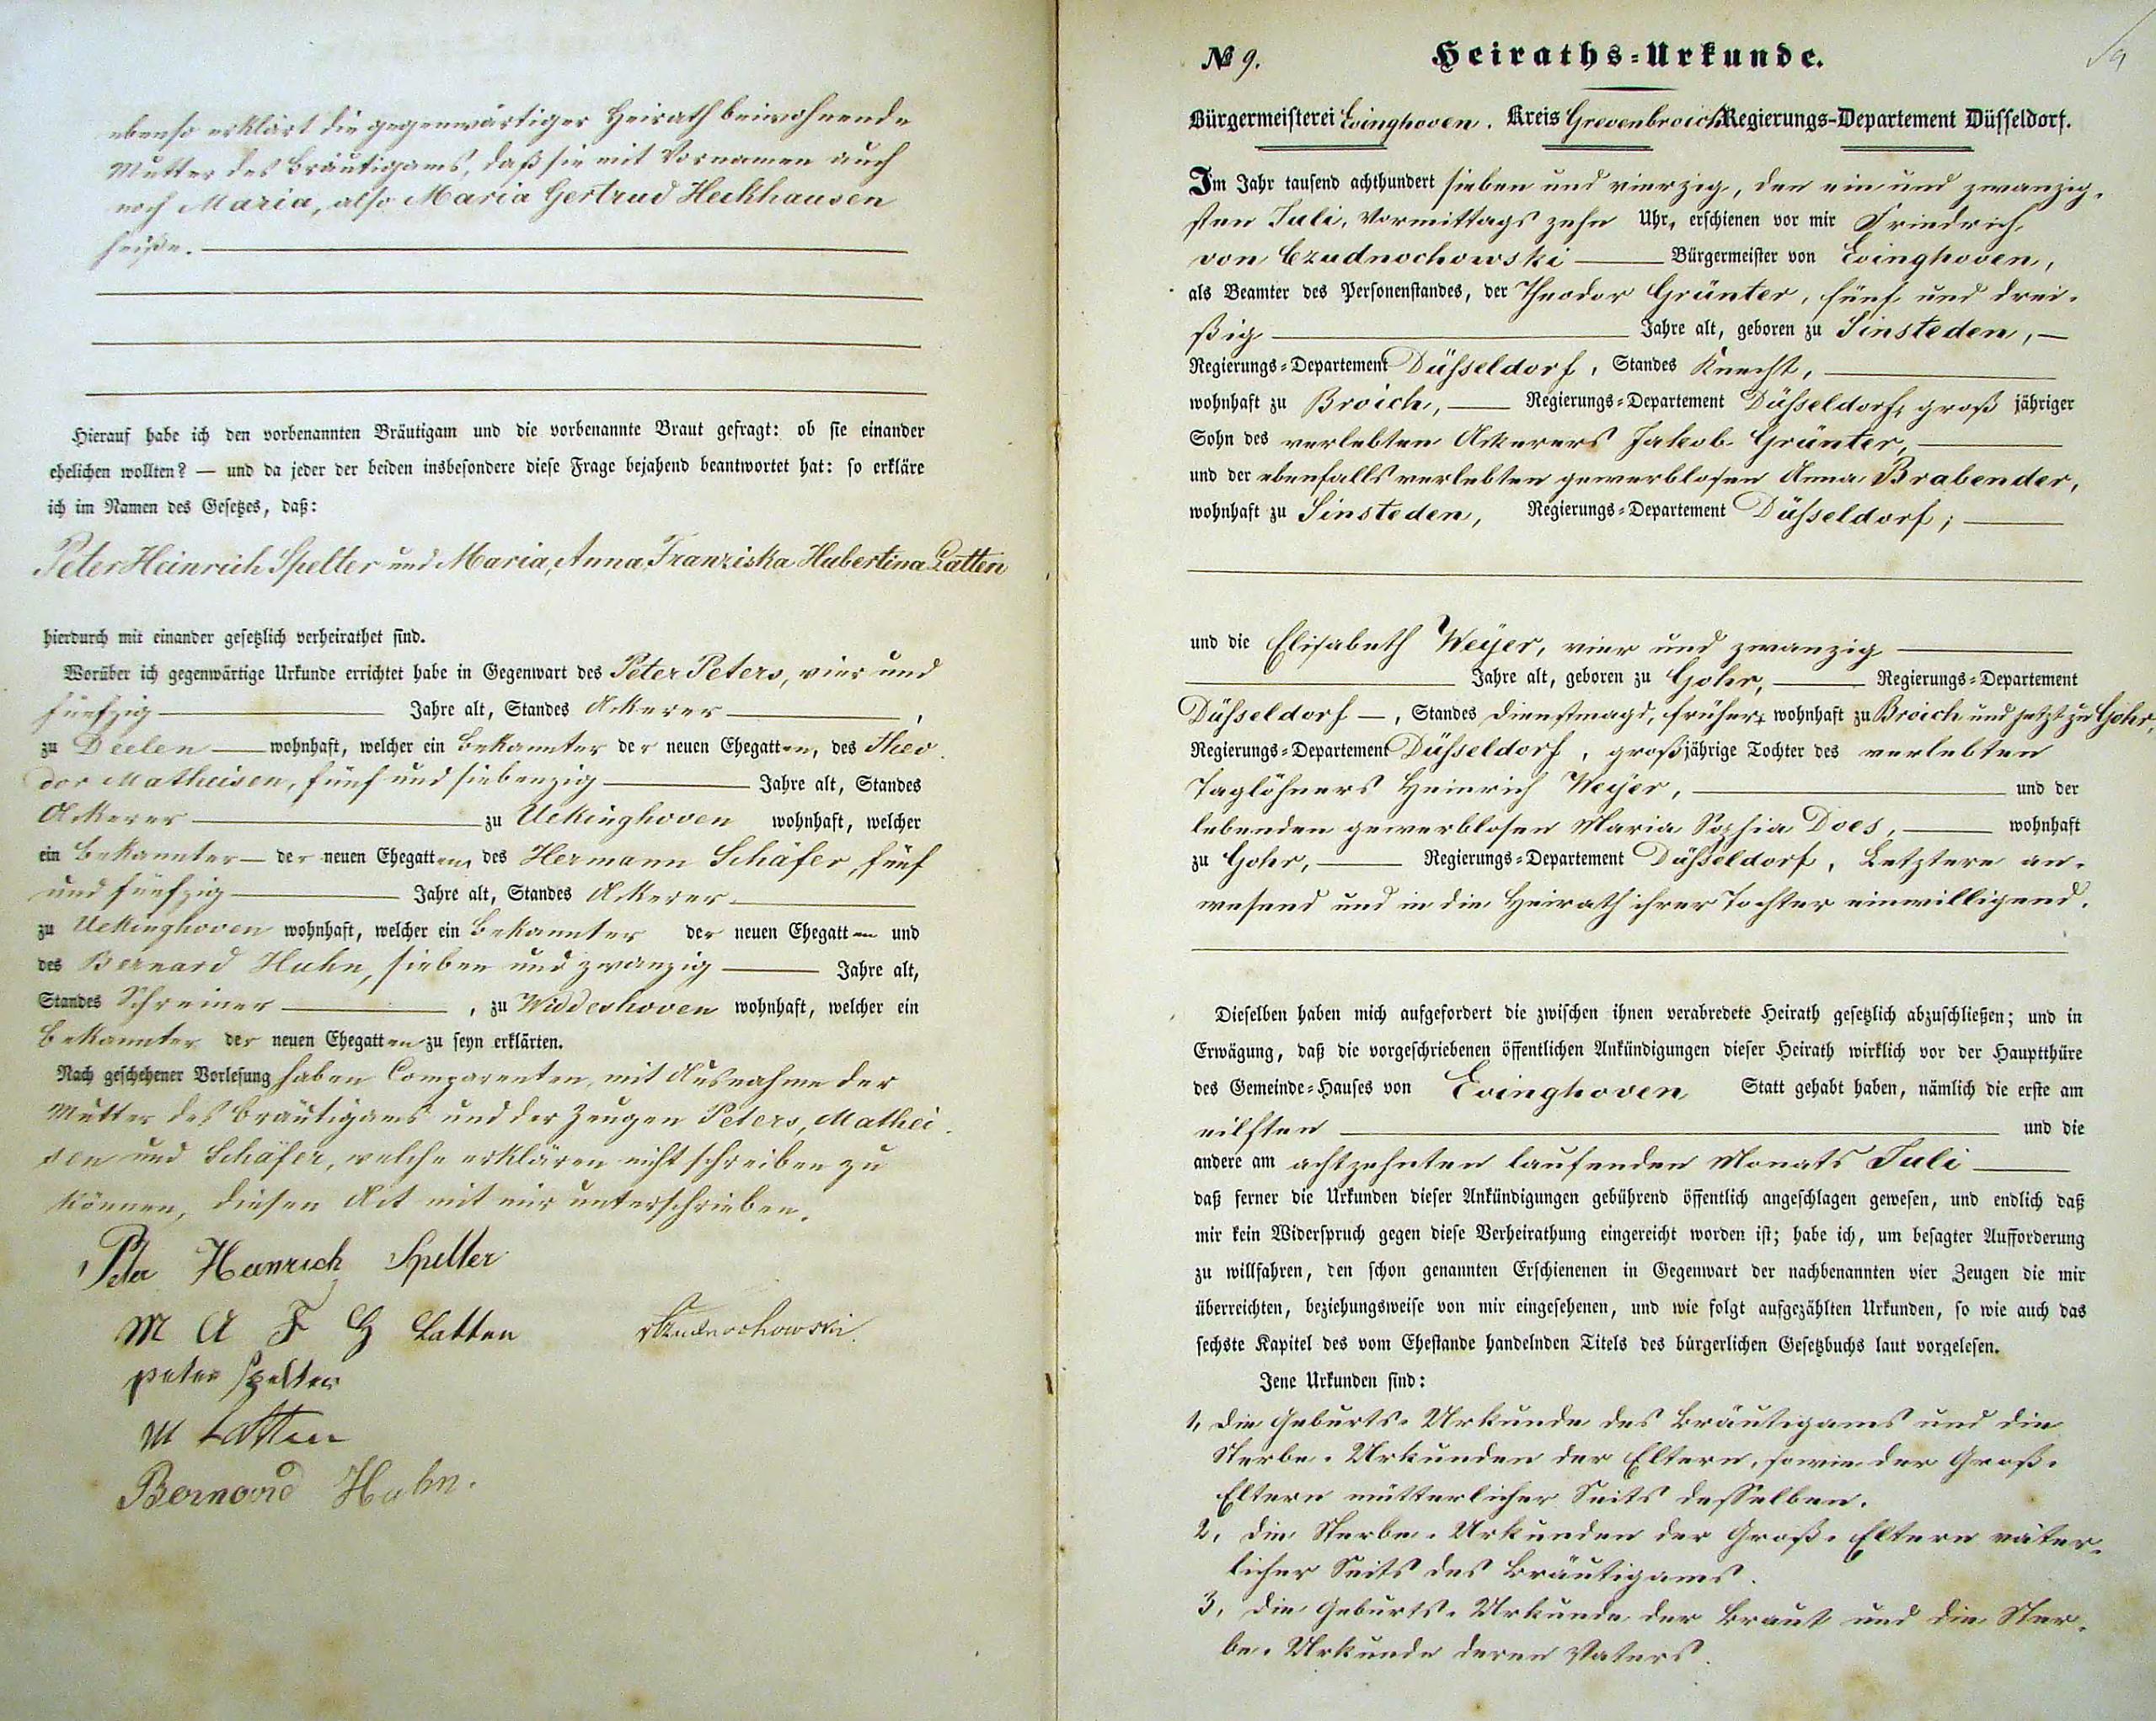 ebenso erklärt die gegenwärtiger Heirath beiwohnende
Mutter des Bräutigams, daß sie mit Vornamen auch
noch Maria, also Maria Gertrud Heckhausen
heiße.
Hierauf habe ich den vorbenannten Bräutigam und die vorbenannte Braut gefragt: ob sie einander
ehelichen wollten? — und da jeder der beiden insbesondere diese Frage bejahend beantwortet hat: so erkläre
ich im Namen des Gesetzes, daß:
Peter Heinrich Spelter und Maria, Anna, Franziska Hubertina Latten
hierdurch mit einander gesetzlich verheirathet sind.
Worüber ich gegenwärtige Urkunde errichtet habe in Gegenwart des Peter Peters, vier und
fünfzig Jahre alt, Standes Ackerer,
zu Deelen wohnhaft, welcher ein Bekannter der neuen Ehegatten, des Theo-
dor Matheisen, fünf und siebenzig Jahre alt, Standes
Ackerer zu Uekinghoven wohnhaft, welcher
ein Bekannter der neuen Ehegatten, des Hermann Schäfer, fünf
und fünfzig Jahre alt, Standes Ackerer
zu Uekinghoven wohnhaft, welcher ein Bekannter der neuen Ehegatten und
des Bernard Hahn, sieben und zwanzig Jahre alt,
Standes Schreiner, zu Widdeshoven wohnhaft, welcher ein
Bekannter der neuen Ehegatten zu seyn erklärten.
Nach geschehener Vorlesung haben Comparenten, mit Ausnahme der
Mutter des Bräutigams und der Zeugen Peters, Mathei-
sen und Schäfer, welche erklären nicht schreiben zu
können, diesen Act mit mir unterschrieben.
Peter Heinrich Spelter
M A F H Latten Czudnochowski
peter Spelter
M Latten
Bernard Hahn.
№ 9. Heiraths-Urkunde.
Bürgermeisterei Evinghoven. Kreis Grevenbroich Regierungs-Departement Düsseldorf.
Im Jahr tausend achthundert sieben und vierzig, den ein und zwanzig-
sten Juli, Vormittags zehn Uhr, erschienen vor mir Friedrich
von Czudnochowski Bürgermeister von Evinghoven,
als Beamter des Personenstandes, der Theodor Grünter, fünf und drei-
ßig Jahre alt, geboren zu Sinsteden,
Regierungs-Departement Düsseldorf, Standes Knecht,
wohnhaft zu Broich, Regierungs-Departement Düsseldorf, groß jähriger
Sohn des verlebten Ackerers Jakob Grünter,
und der ebenfalls verlebten gewerblosen Anna Brabender,
wohnhaft zu Sinsteden, Regierungs-Departement Düsseldorf;
und die Elisabeth Weyer, vier und zwanzig
Jahre alt, geboren zu Gohr, Regierungs-Departement
Düsseldorf, Standes Dienstmagd, früher wohnhaft zu Broich und jetzt zu Gohr,
Regierungs-Departement Düsseldorf, großjährige Tochter des verlebten
Taglöhners Heinrich Weyer, und der
lebenden gewerblosen Maria Sophia Does, wohnhaft
zu Gohr, Regierungs-Departement Düsseldorf, Letztere an-
wesend und in die Heirath ihrer Tochter einwilligend.
Dieselben haben mich aufgefordert die zwischen ihnen verabredete Heirath gesetzlich abzuschließen; und in
Erwägung, daß die vorgeschriebenen öffentlichen Ankündigungen dieser Heirath wirklich vor der Hauptthüre
des Gemeinde-Hauses von Evinghoven Statt gehabt haben, nämlich die erste am
eilften und die
andere am achtzehnten laufenden Monats Juli
daß ferner die Urkunden dieser Ankündigungen gebührend öffentlich angeschlagen gewesen, und endlich daß
mir kein Widerspruch gegen diese Verheirathung eingereicht worden ist; habe ich, um besagter Aufforderung
zu willfahren, den schon genannten Erschienenen in Gegenwart der nachbenannten vier Zeugen die mir
überreichten, beziehungsweise von mir eingesehenen, und wie folgt aufgezählten Urkunden, so wie auch das
sechste Kapitel des vom Ehestande handelnden Titels des bürgerlichen Gesetzbuchs laut vorgelesen.
Jene Urkunden sind:
1, die Geburts-Urkunde des Bräutigams und die
Sterbe-Urkunden der Eltern, sowie der Groß-
Eltern mütterlicher Seits desselben.
2, die Sterbe-Urkunden der Groß-Eltern väter-
licher Seits des Bräutigams.
3, die Geburts-Urkunde der Braut und die Ster-
be-Urkunde deren Vaters.